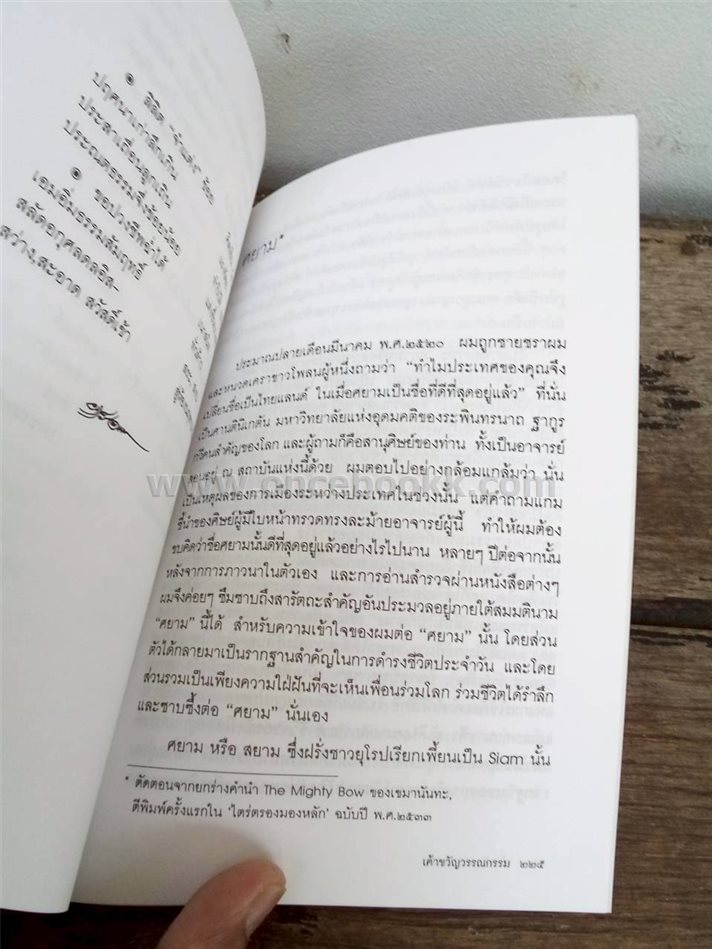 • ลิลิต "จำแดง" ร้อย
ปฤศนาเก่าลึกเกิน
ประสาเถื่อนลูกเถิน
ประณตธรรมจึงข้อยน้อย
• ขอปวงชีพซ้ำได้
เอมอิ่มธรรมสัมฤทธิ์
สลัดอกุศลดลอิส-
สว่าง,สะอาด สวัสดิ์เช้า
ศยาม*
ประมาณปลายเดือนมีนาคม พ.ศ.๒๕๒๐ ผมถูกชายชราผม
และหนวดเคราขาวโพลนผู้หนึ่งถามว่า "ทำไมประเทศของคุณจึง
เปลี่ยนชื่อเป็นไทยแลนด์ ในเมื่อศยามเป็นชื่อที่ดีที่สุดอยู่แล้ว" ที่นั่น
เป็นศานตินิเกตัน มหาวิทยาลัยแห่งอุดมคติของระพินทรนาถ ฐากูร
กวีคนสำคัญของโลก และผู้ถามก็คือสานุศิษย์ของท่าน ทั้งเป็นอาจารย์
สอนอยู่ ณ สถาบันแห่งนี้ด้วย ผมตอบไปอย่างกล้อมแกล้มว่า นั่น
เป็นเหตุผลของการเมืองระหว่างประเทศในช่วงนั้น แต่คำถามแกม
ชี้นำของศิษย์ผู้มีใบหน้าทรวดทรงละม้ายอาจารย์ผู้นี้ ทำให้ผมต้อง
ขบคิดว่าชื่อศยามนั้นดีที่สุดอยู่แล้วอย่างไรไปนาน หลายๆ ปีต่อจากนั้น
หลังจากการภาวนาในตัวเอง และการอ่านสำรวจผ่านหนังสือต่างๆ
ผมจึงค่อยๆ ซึมซาบถึงสารัตถะสำคัญอันประมวลอยู่ภายใต้สมมตินาม
"ศยาม" นี้ได้ สำหรับความเข้าใจของผมต่อ "ศยาม" นั้น โดยส่วน
ตัวได้กลายมาเป็นรากฐานสำคัญในการดำรงชีวิตประจำวัน และโดย
ส่วนรวมเป็นเพียงความใฝ่ฝันที่จะเห็นเพื่อนร่วมโลก ร่วมชีวิตได้รำลึก
และซาบซึ้งต่อ "ศยาม" นั่นเอง
ศยาม หรือ สยาม ซึ่งฝรั่งชาวยุโรปเรียกเพี้ยนเป็น Siam นั้น
* ตัดตอนจากยกร่างคำนำ The Mighty Bow ของเขมานันทะ,
ตีพิมพ์ครั้งแรกใน 'ไตร่ตรองมองหลัก' ฉบับปี พ.ศ.๒๕๓๓
เค้าขวัญวรรณกรรม ๒๒๕
www.oncebookk.com